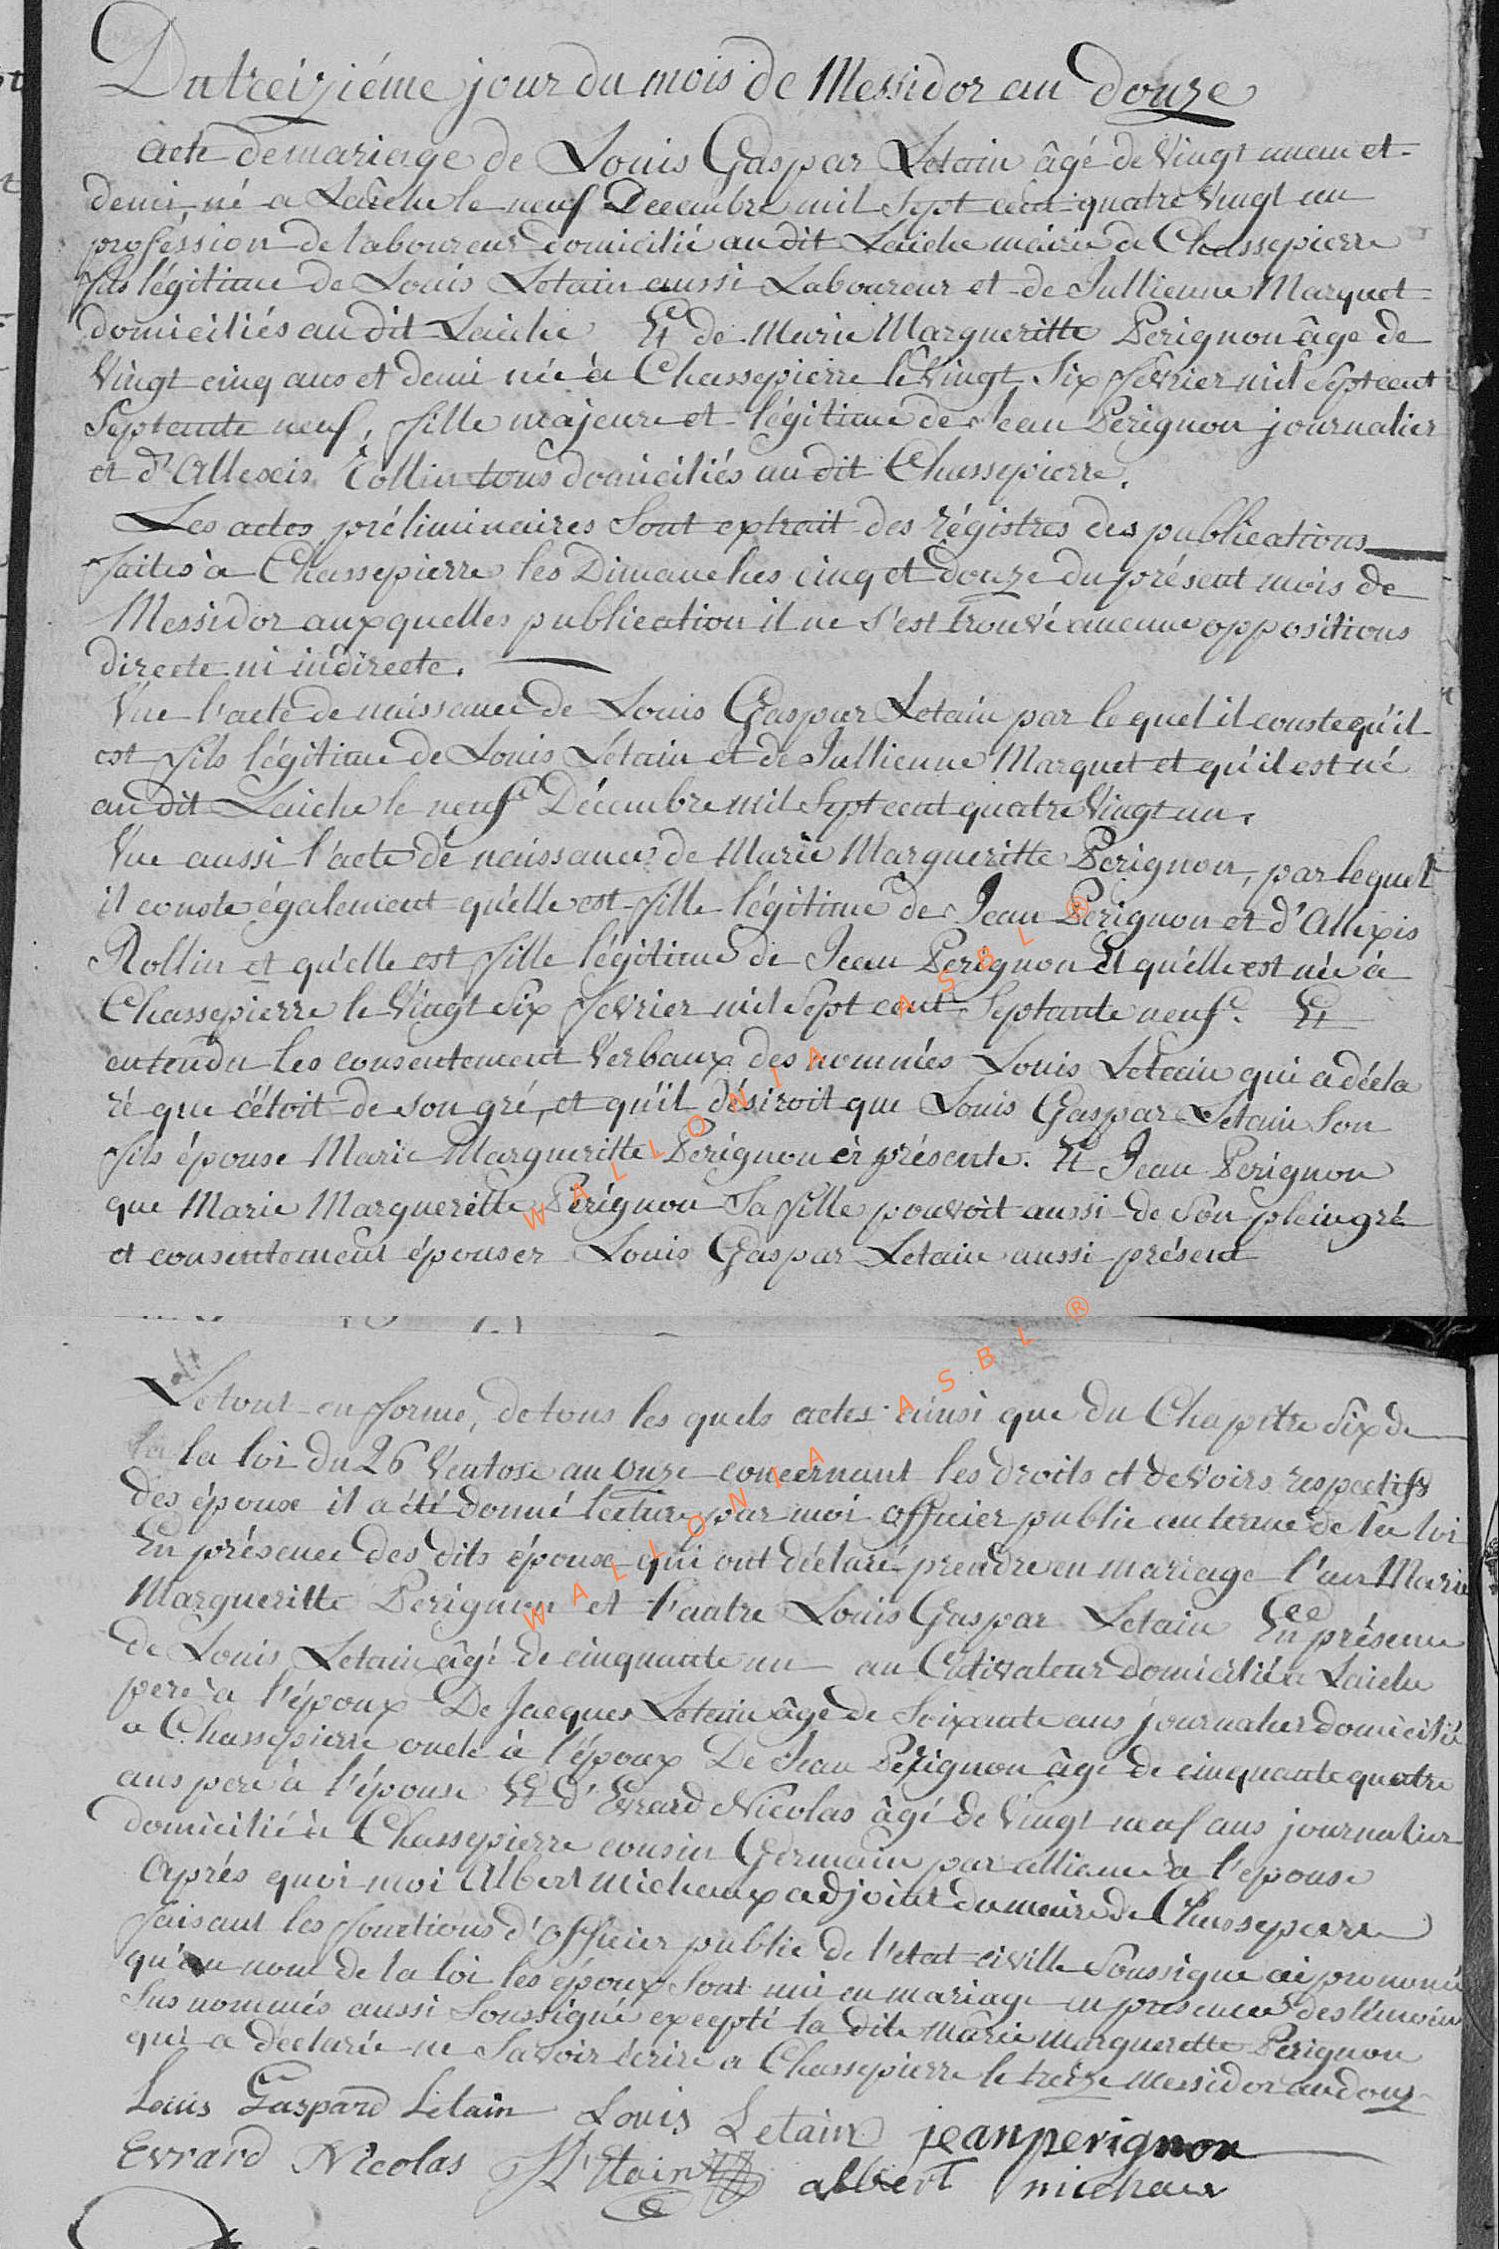 Du treiziéme jour du mois de Messidor an douze
acte de mariage de Louis Gaspar Letain âgé de Vingt et
demi, né a Laiche le neuf Decembre mil Sept cent quatre Vingt un
profession de laboureur domicilié au dit Laiche mairie de Chassepierre
fils légitime de Louis Letain aussi Laboureur et de Jullienne Marquet
domiciliés au dit Laiche Et de Marie Margueritte Perignon âge de
Vingt cinq ans et demi née à Chassepierre le Vingt Six fevrier mil Sept cent
Septante neuf, fille majeure et légitime de Jean Perignon journalier
et d'Allexis Rollin tous domiciliés au dit Chassepierre.
Les actes préliminaires Sont extrait des régistres des publications
faites à Chassepierre les Dimanches cinq et douze du présent mois de
Messidor auxquelles publication il ne s'est trouvé aucune oppositions
directe ni indirecte.
Vue l'acte de naissance de Louis Gaspar Letain par le quel il conste qu'il
est fils légitime de Louis Létain et de Jullienne Marquet et qu'il est né
au dit Laiche le neuf Décembre mil Sept cent quatre Vingt un.
Vue aussi l'acte de naissance de Marie Margueritte Perignon, par lequel
il conste également qu'elle est fille légitime de Jean Perignon et d'Allexis
Rollin et qu'elle est fille légitime de Jean Perignon Et qu'elle est née à
Chassepierre le Vingt Six fevrier mil Sept cent Septante neuf. Et
entendu les consentement Verbaux des nommés Louis Letain qui a décla
ré que c'étoit de son gré, et qu'il désiroit que Louis Gaspar Letain Son
fils épouse Marie Margueritte Perignon ci présente. Et Jean Perignon
que Marie Margueritte Pérignon Sa fille pouvoit aussi de Son plein gré
et consentement épouser Louis Gaspar Letain aussi présent
Le tout en forme, de tous les quels actes ainsi que du Chapitre Six de
la loi du 26 Ventose an onze concernant les droits et devoirs respectifs
des épouse il a été donné lecture par moi officier public au terme de la loi
En présence des dits épouse qui ont déclaré prendre en mariage l'un Marie
Margueritte Perignon et l'autre Louis Gaspar Letain En présence
de Louis Letain âgé de cinquante un an Cultivateur domicilié a Laiche
pere à l'époux De Jacques Letain âgé de Soixante ans journalier domicilié
a Chassepierre oncle à l'époux De Jean Pérignon âge de cinquante quatre
ans pere à l'épouse Et d'Evrard Nicolas âgé de Vingt neuf ans journalier
domicilié à Chassepierre cousin Germain par alliance à l'epouse
Après quoi moi Albert Michaux adjoint du maire de Chassepierre
faisant les fonctions d'officier public de l'etat civille Soussigné ai prononcé
qu'au nom de la loi les époux Sont uni en mariage en presence des témoins
Sus nommés aussi Soussigné excepté la dite Marie Margueritte Perignon
qui a declarée ne Savoir écrire a Chassepierre le treize Messidor an douze
Louis Gaspard Letain Louis Letain jean perignon
Evrard Nicolas albert michaux
WALLONIA ASBL ®
WALLONIA ASBL ®